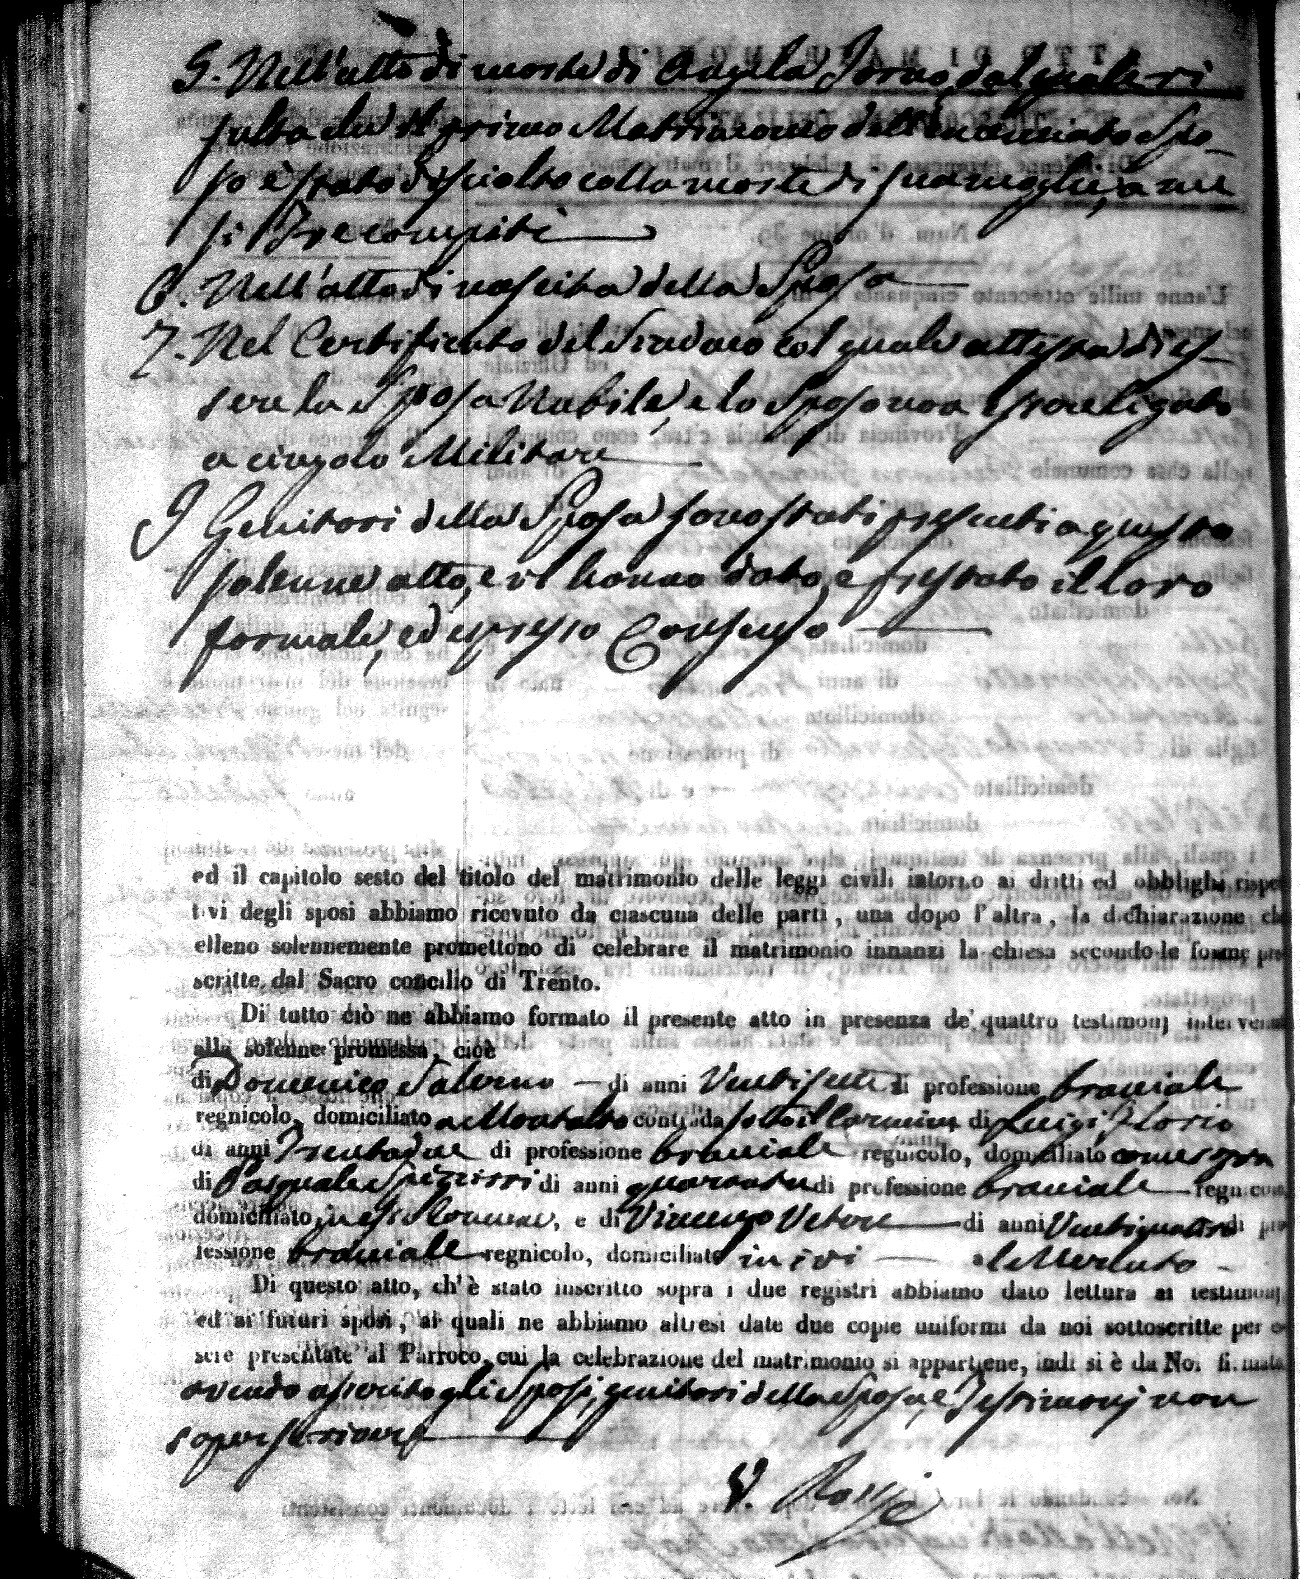 5. Nell'atto di morte di Angela Iorno, dal quale ri
sulta che il primo Matrimonio dell'enunciato Spo-
so è stato disciolto colla morte di sua moglie, a me
si: Tre compiti
6. Nell'atto di nascita della Sposa
7. Nel Certificato del Sindaco col quale attesta di es
sere la Sposa Nubile, e lo Sposo non esser ligato
a cingolo Militare
I Genitori della Sposa sono stati presenti a questo
solenne atto, e vi hanno dato, e prestato il loro
formale, ed espresso Consenso
ed il capitolo sesto del titolo del matrimonio delle leggi civili intorno ai dritti ed obblighi rispet
tivi degli sposi abbiamo ricevuto da ciascuna delle parti, una dopo l'altra, la dichiarazione che
elleno solennemente promettono di celebrare il matrimonio innanzi la chiesa secondo le forme pre
scritte dal Sacro concilio di Trento.
Di tutto ciò ne abbiamo formato il presente atto in presenza de' quattro testimonj interven
alla solenne promessa, cioè
di Domenico Salerno — di anni Ventisette, di professione bracciale
regnicolo, domiciliato a Montalto contrada sotto il Carmine, di Luigi Florio
di anni Trentadue di professione bracciale regnicolo, domiciliato come sopra
di Pasquale di anni quaranta di professione bracciale regnicolo
domiciliato, e di Vincenzo Vetere di anni Ventiquattro di pro
fessione bracciale regnicolo, domiciliato in ivi
Di questo atto, ch'è stato inscritto sopra i due registri abbiamo dato lettura ai testimonj,
ed ai futuri sposi, ai quali ne abbiamo altresi date due copie uniformi da noi sottoscritte per es
sere presentate al Parroco, cui la celebrazione del matrimonio si appartiene, indi si è da Noi firmato
avendo asserito gli Sposi, genitori della Sposa, e Testimonj non
saper scrivere